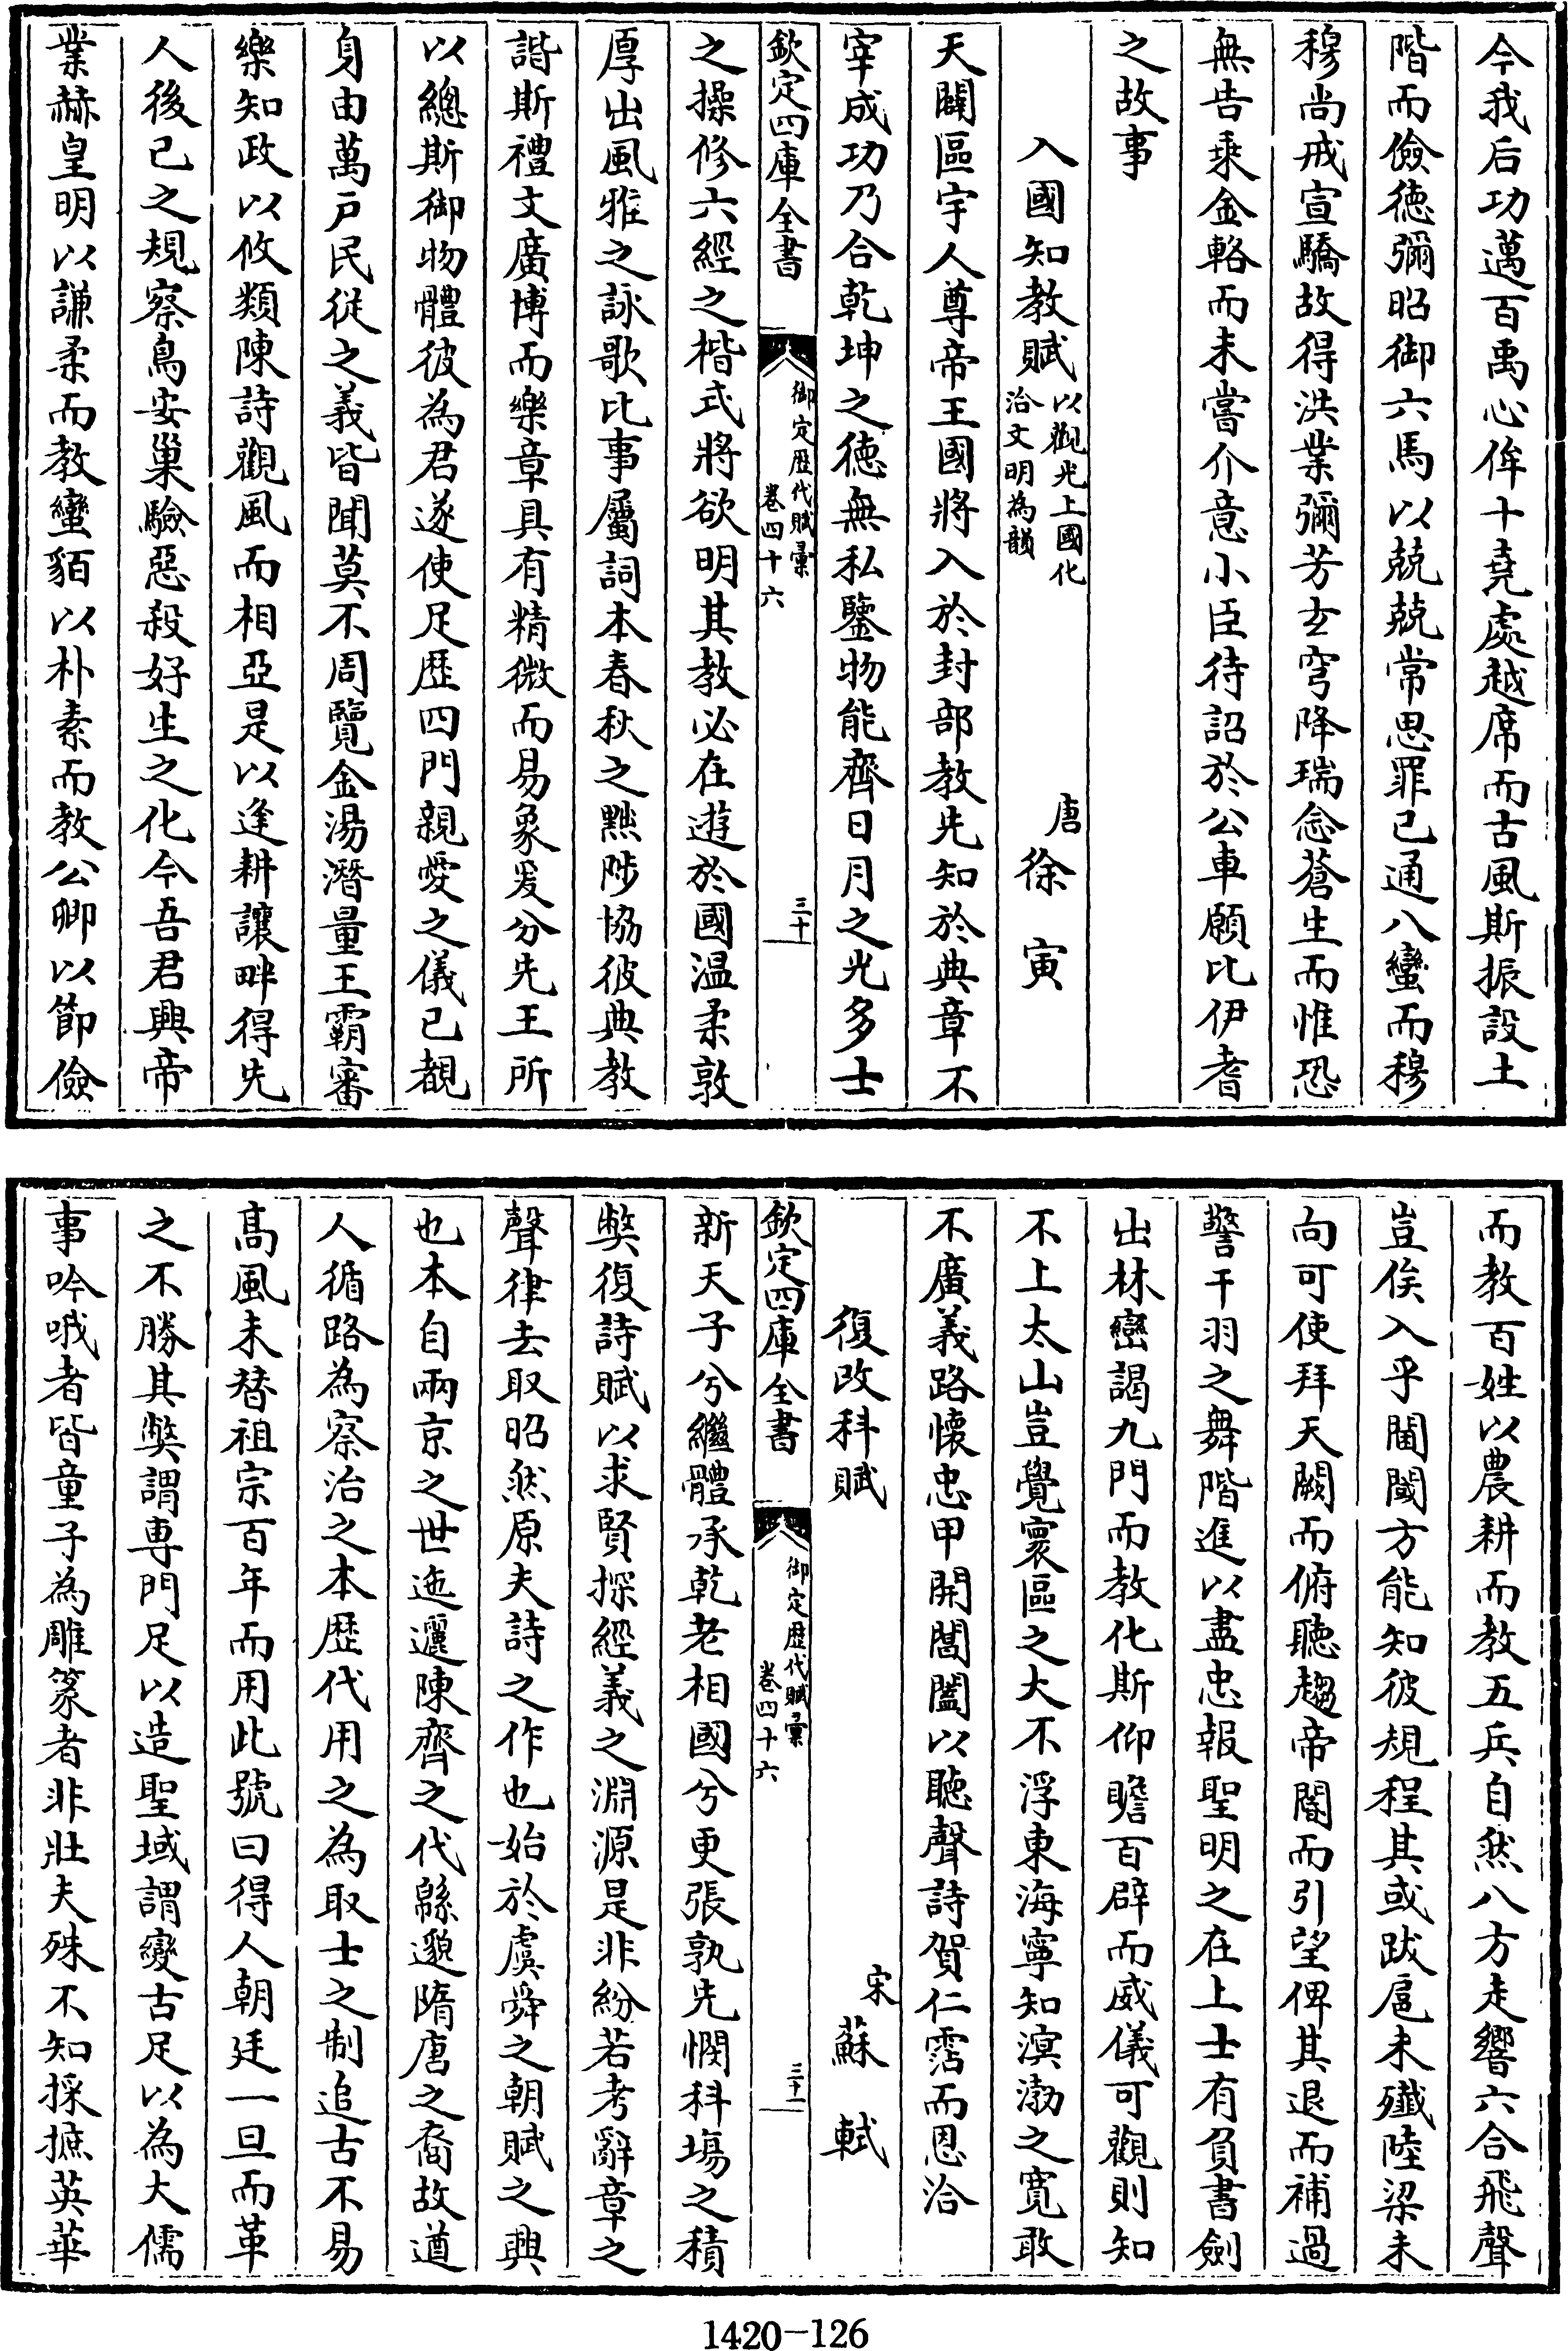 今我后功邁百禹心侔十堯處越席而古風斯振設土
階而儉徳彌昭御六馬以兢兢常思罪己通八蠻而穆
穆尚戒宣驕故得洪業彌芳玄穹降瑞念蒼生而惟恐
無告乘金輅而未嘗介意小臣待詔於公車願比伊耆
之故事
入國知教賦以觀光上國化洽文明為韻
唐徐寅
天闢區宇人尊帝王國將入於封部教先知於典章不
宰成功乃合乾坤之徳無私鑒物能齊日月之光多士
欽定四庫全書
御定歴代賦彙
卷四十六
三十
之操修六經之楷式將欲明其教必在遊於國温柔敦
厚出風雅之詠歌比事屬詞本春秋之黜陟協彼典教
諧斯禮文廣博而樂章具有精微而易象爰分先王所
以總斯御物體彼為君遂使足歴四門親愛之儀已覩
身由萬戸民從之義皆聞莫不周覽金湯潛量王霸審
樂知政以攸類陳詩觀風而相亞是以逢耕讓畔得先
人後已之規察鳥安巢驗惡殺好生之化今吾君興帝
業赫皇明以謙柔而教蠻貊以朴素而教公卿以節儉
而教百姓以農耕而教五兵自然八方走響六合飛聲
豈俟入乎閫閾方能知彼規程其或跋扈未殲陸梁未
向可使拜天闕而俯聽趨帝閽而引望俾其退而補過
警干羽之舞階進以盡忠報聖明之在上士有負書劍
出林巒謁九門而教化斯仰瞻百辟而威儀可觀則知
不上太山豈覺寰區之大不浮東海寧知溟渤之寛敢
不廣義路懷忠甲開閶闔以聽聲詩賀仁霑而恩洽
復改科賦
宋蘇軾
欽定四庫全書
御定歴代賦彙
卷四十六
三十一
新天子兮繼體承乾老相國兮更張孰先憫科塲之積
獘復詩賦以求賢探經義之淵源是非紛若考辭章之
聲律去取昭然原夫詩之作也始於虞舜之朝賦之興
也本自兩京之世迤邐陳齊之代緜邈隋唐之裔故遒
人循路為察治之本歴代用之為取士之制追古不易
髙風未替祖宗百年而用此號曰得人朝廷一旦而革
之不勝其獘謂専門足以造聖域謂變古足以為大儒
事吟哦者皆童子為雕篆者非壯夫殊不知採摭英華
1420-126